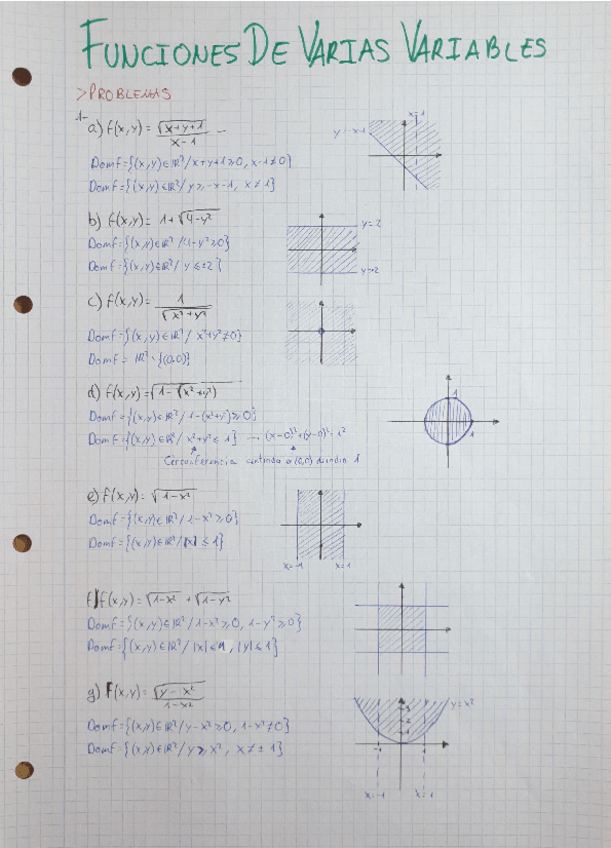 FUNCIONES DE VARIAS VARIABLES
>PROBLEMAS
1-
a) f(x,y) = √(x+y+1) / (x-1)
Domf={(x,y)∈ℝ²/x+y+1≥0, x-1≠0}
Domf={(x,y)∈ℝ²/y≥-x-1, x≠1}
y=-x-1
x=1
b) f(x,y)= 1+√(4-y²)
Domf={(x,y)∈ℝ²/4-y²≥0}
Domf={(x,y)∈ℝ²/y≤±2}
y=2
c) f(x,y)= 1 / √(x²+y²)
Domf={(x,y)∈ℝ²/x²+y²≠0}
Domf= ℝ²-{(0,0)}
d) f(x,y)=√(1-(x²+y²))
Domf={(x,y)∈ℝ²/1-(x²+y²)≥0}
Domf={(x,y)∈ℝ²/x²+y²≤1} → (x-0)²+(y-0)²=1²
Circunferencia centrada a (0,0) de radio 1
1
1
e) f(x,y)= √(1-x²)
Domf={(x,y)∈ℝ²/1-x²≥0}
Domf={(x,y)∈ℝ²/|x|≤1}
x=-1 x=1
f) f(x,y)=√(1-x²) +√(1-y²)
Domf={(x,y)∈ℝ²/1-x²≥0, 1-y²≥0}
Domf={(x,y)∈ℝ²/|x|≤1, |y|≤1}
g) F(x,y)= √(y-x²) / (1-x²)
Domf={(x,y)∈ℝ²/y-x²≥0, 1-x²≠0}
Domf={(x,y)∈ℝ²/y≥x², x≠±1}
y=x²
3
2
1
-1 1
x=-1 x=1